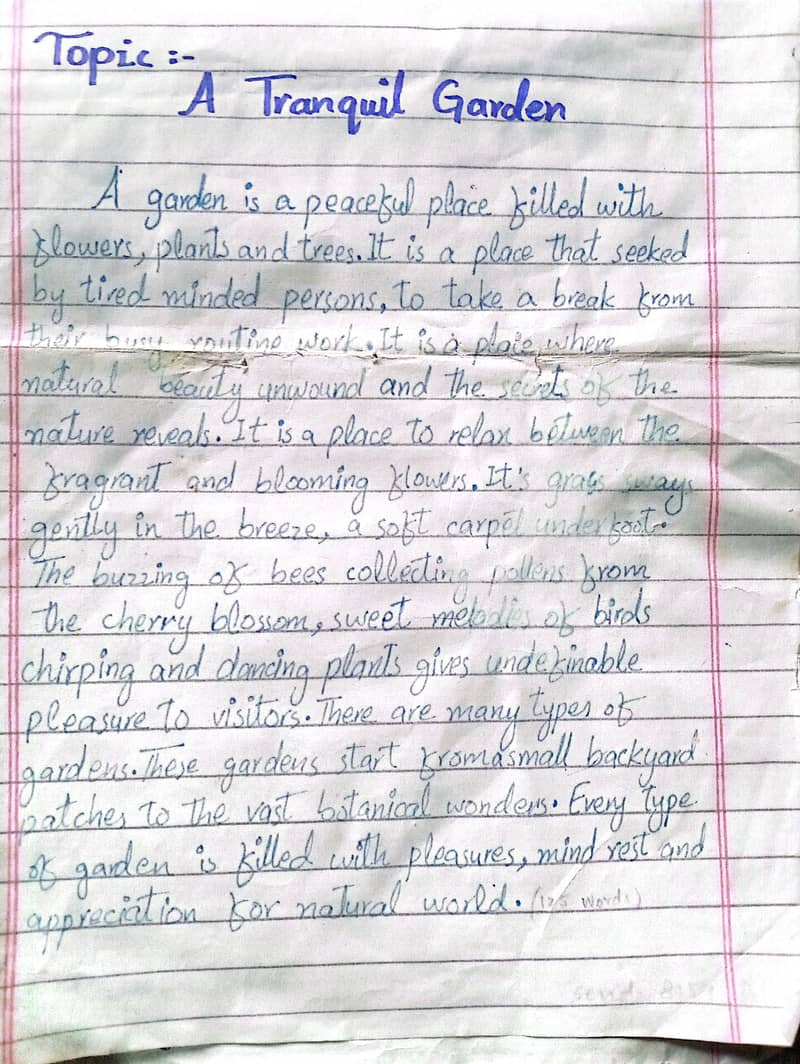 Topic :-
A Tranquil Garden
A garden is a peaceful place filled with
flowers, plants and trees. It is a place that seeked
by tired minded persons, to take a break from
their busy routine work. It is a place where
natural beauty unwound and the secrets of the
nature reveals. It is a place to relax between the
fragrant and blooming flowers. It's grass sways
gently in the breeze, a soft carpet underfoot.
The buzzing of bees collecting pollens from
the cherry blossom, sweet melodies of birds
chirping and dancing plants gives undefinable
pleasure to visitors. There are many types of
gardens. These gardens start from a small backyard
patches to the vast botanical wonders. Every type
of garden is filled with pleasures, mind rest and
appreciation for natural world. (125 words)